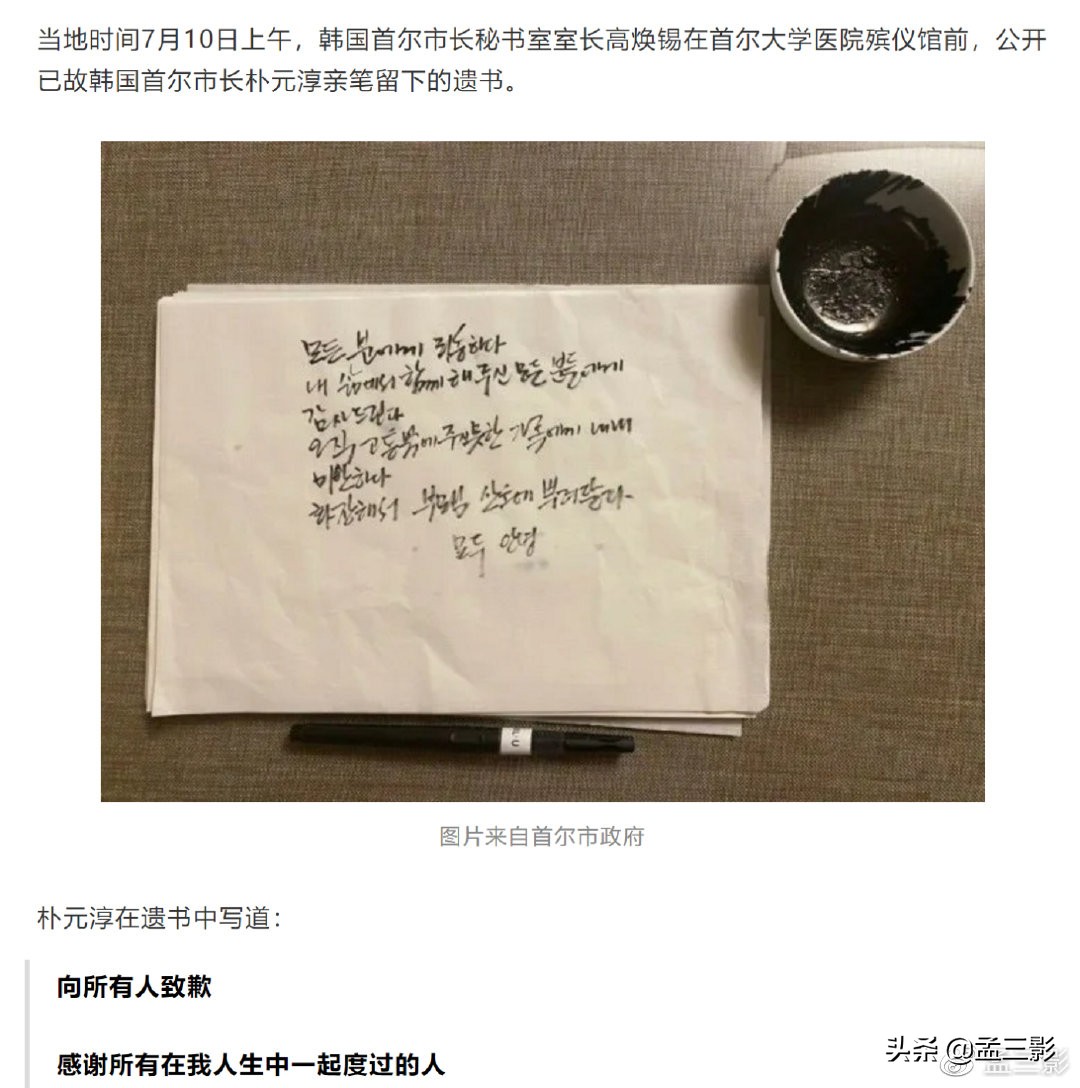 当地时间7月10日上午，韩国首尔市长秘书室室长高焕锡在首尔大学医院殡仪馆前，公开
已故韩国首尔市长朴元淳亲笔留下的遗书。
모든 분에게 죄송하다
내 삶에서 함께 해주신 모든 분들에게
감사드린다
오직 고통밖에 주지못한 가족에게 내내
미안하다
화장해서 부모님 산소에 뿌려달라
모두 안녕
图片来自首尔市政府
朴元淳在遗书中写道：
向所有人致歉
感谢所有在我人生中一起度过的人
头条 @孟三影
@孟三影